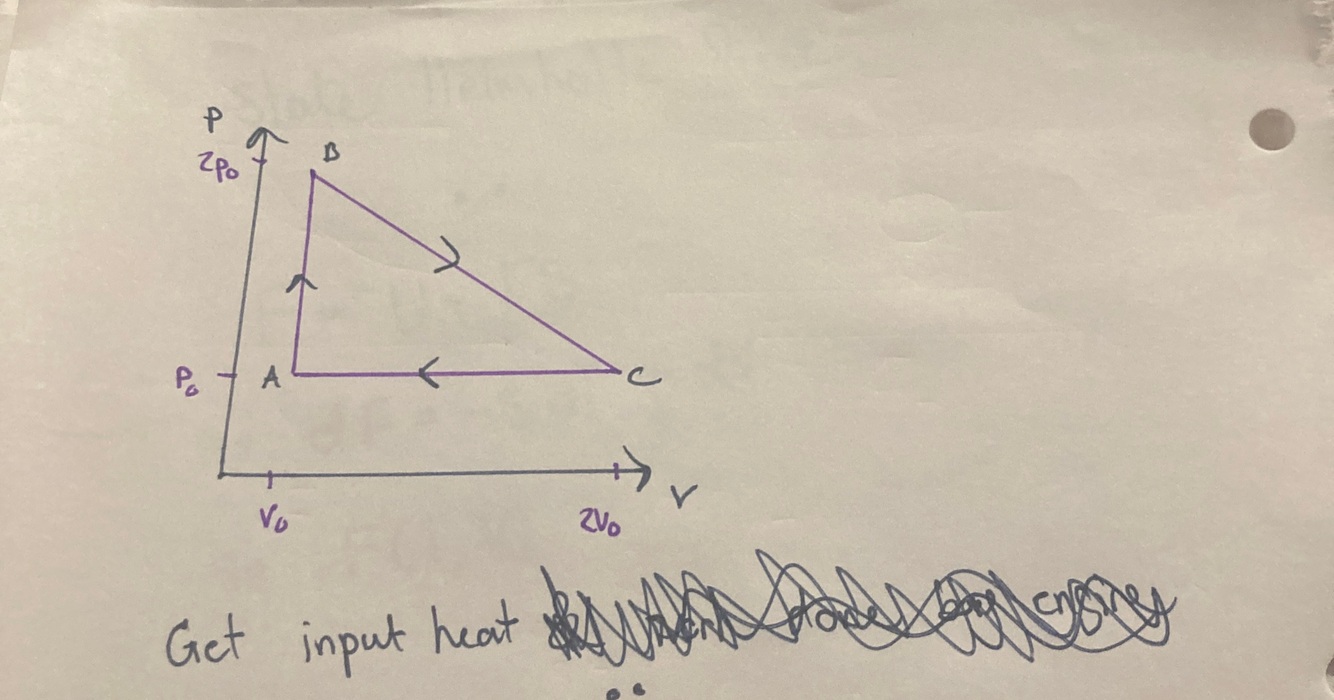 P
2P₀
B
P₀
A
C
V
V₀
2V₀
Get input heat